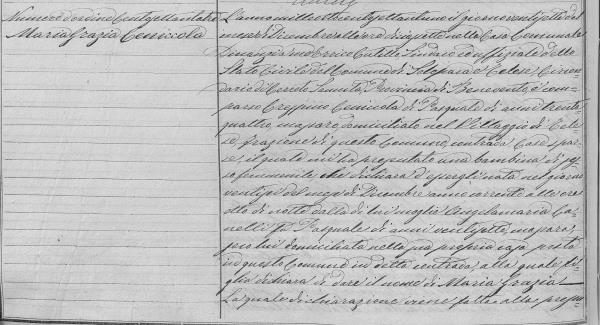 Numero d'ordine Centottantatre
Maria Grazia Cenicola
L'anno milleottocentottantuno il giorno ventisette del
mese di Dicembre alle ore dieci nella Casa Comunale
Innanzi di me Errico Cutilli Sindaco ed uffiziale dello
Stato Civile del Comune di Solopaca e Telese, Circon-
dario di Cerreto Sannita, Provincia di Benevento, è com-
parso Crespino Cenicola di Pasquale di anni trenta-
quattro, domiciliato nel Villaggio di Tele-
se, frazione di questo Comune, contrada Case spar-
se, il quale mi ha presentato una bambina di ses-
so femminile che dichiara essergli nata nel giorno
del mese di Dicembre anno corrente alle ore
otto di notte dalla di lui moglie Angelamaria Ca-
nelli fu Pasquale di anni ventisette,
con lui domiciliata nella sua propria casa posta
in questo Comune in detta contrada, alla quale fi-
glia dichiara di dare il nome di Maria Grazia
La quale dichiarazione viene fatta alla presen-